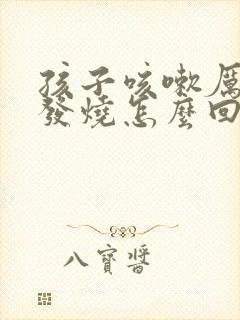 孩子咳嗽厲
發燒怎麼回
八寶醬